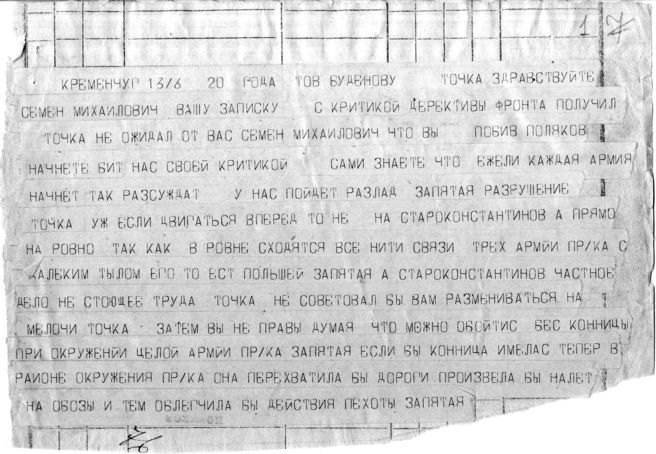 1 7
КРЕМЕНЧУГ 13/6 20 ГОДА ТОВ БУДЕНОВУ ТОЧКА ЗДРАВСТВУЙТЕ
СЕМЕН МИХАИЛОВИЧ ВАШУ ЗАПИСКУ С КРИТИКОЙ ДЕРЕКТИВЫ ФРОНТА ПОЛУЧИЛ
ТОЧКА НЕ ОЖИДАЛ ОТ ВАС СЕМЕН МИХАИЛОВИЧ ЧТО ВЫ ПОБИВ ПОЛЯКОВ
НАЧНЕТЕ БИТ НАС СВОЕЙ КРИТИКОЙ САМИ ЗНАЕТЕ ЧТО ЕЖЕЛИ КАЖДАЯ АРМИЯ
НАЧНЕТ ТАК РАЗСУЖДАТ У НАС ПОЙДЕТ РАЗЛАД ЗАПЯТАЯ РАЗРУШЕНИЕ
ТОЧКА УЖ ЕСЛИ ДВИГАТЬСЯ ВПЕРЕД ТО НЕ НА СТАРОКОНСТАНТИНОВ А ПРЯМО
НА РОВНО ТАК КАК В РОВНЕ СХОДЯТСЯ ВСЕ НИТИ СВЯЗИ ТРЕХ АРМЙИ ПР/КА С
ДАЛЕКИМ ТЫЛОМ ЕГО ТО ЕСТ ПОЛЬШЕЙ ЗАПЯТАЯ А СТАРОКОНСТАНТИНОВ ЧАСТНОЕ
ДЕЛО НЕ СТОЮЩЕЕ ТРУДА ТОЧКА НЕ СОВЕТОВАЛ БЫ ВАМ РАЗМЕНИВАТЬСЯ НА
МЕЛОЧИ ТОЧКА ЗАТЕМ ВЫ НЕ ПРАВЫ ДУМАЯ ЧТО МОЖНО ОБОЙТИС БЕС КОННИЦЫ
ПРИ ОКРУЖЕНЙИ ЦЕЛОЙ АРМЙИ ПР/КА ЗАПЯТАЯ ЕСЛИ БЫ КОННИЦА ИМЕЛАС ТЕПЕР В
РАИОНЕ ОКРУЖЕНИЯ ПР/КА ОНА ПЕРЕХВАТИЛА БЫ ДОРОГИ ПРОИЗВЕЛА БЫ НАЛЕТ
НА ОБОЗЫ И ТЕМ ОБЛЕГЧИЛА БЫ ДЕЙСТВИЯ ПЕХОТЫ ЗАПЯТАЯ